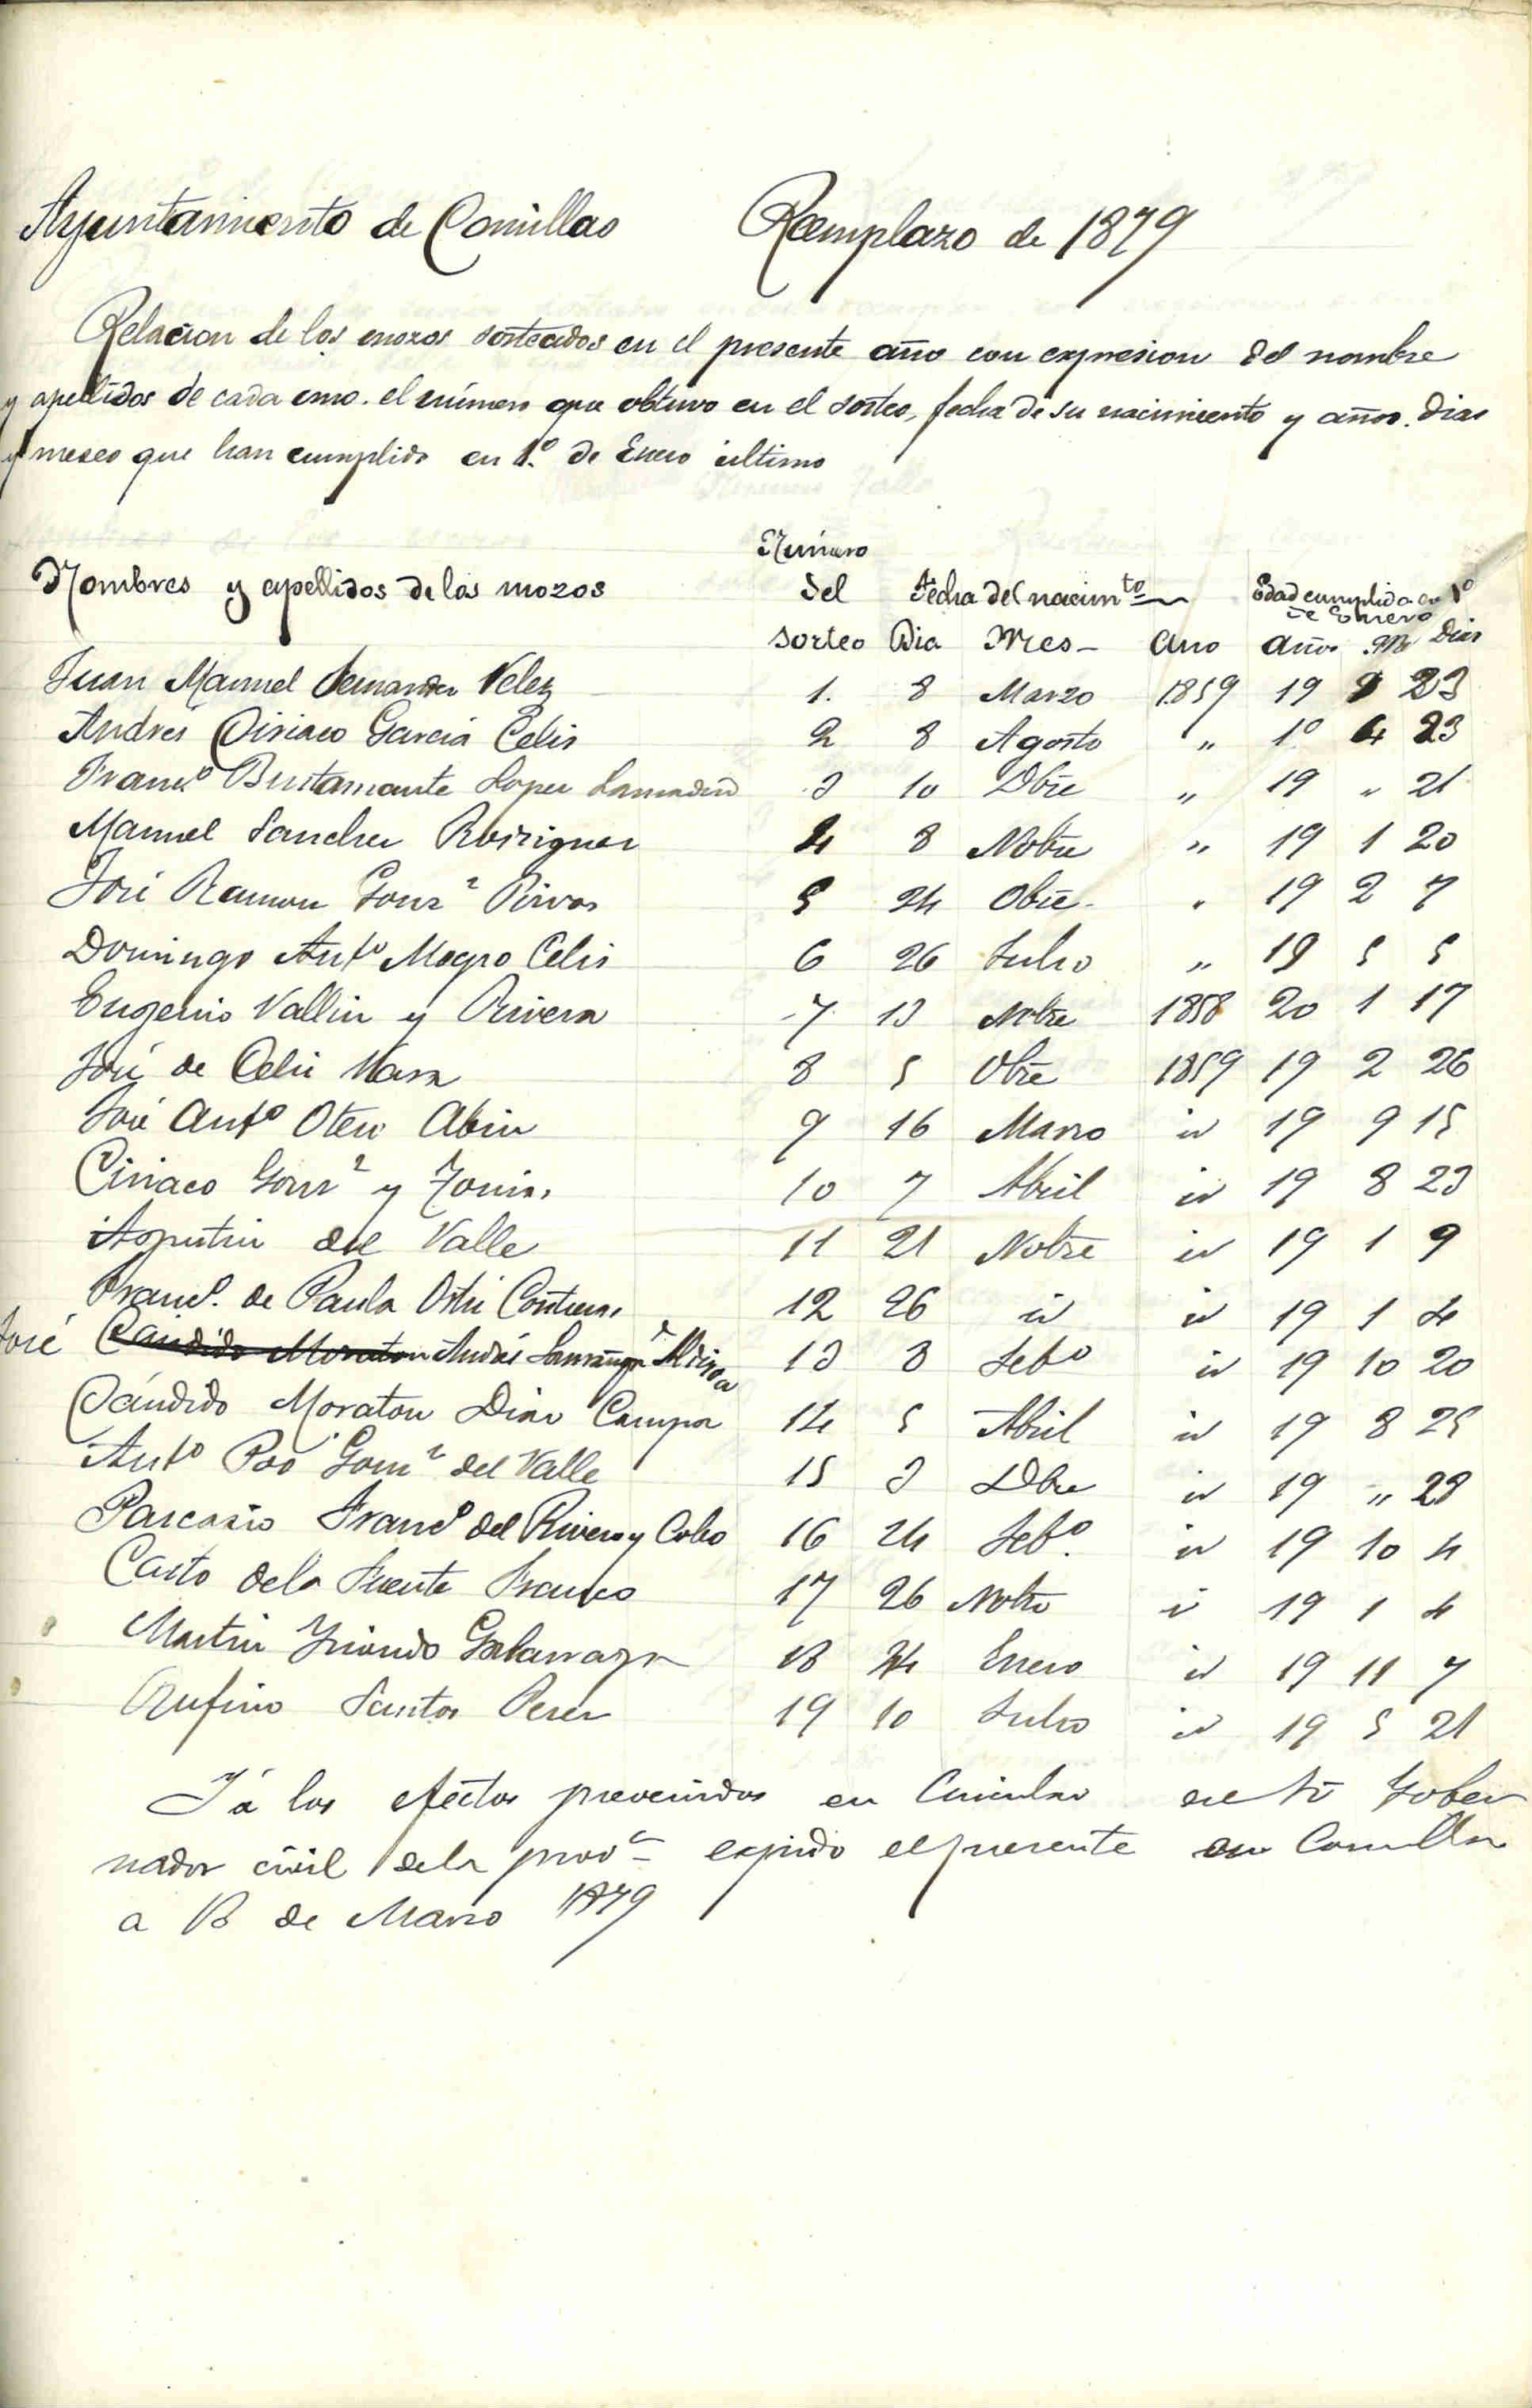 Ayuntamiento de Comillas Reemplazo de 1879
Relacion de los mozos sorteados en el presente año con expresion del nombre
y apellidos de cada uno. el número que obtuvo en el sorteo, fecha de su nacimiento y años. dias
y meses que han cumplido en 1.º de Enero último
Número
Nombres y apellidos de los mozos del Fecha del nacimto Edad cumplida en 1º
de Enero
sorteo Dia Mes Año Años M Dias
Juan Manuel Fernandez Velez 1. 8 Marzo 1859 19 9 23
Andrés Ciriaco Garcia Celis 2 8 Agosto " 1º 4 23
Francº Bustamante Lopez 3 10 Dbre " 19 " 21
Manuel Sanchez Rodriguez 4 8 Nobre " 19 1 20
José Ramon Gonz Rivas 5 24 Obre " 19 2 7
Domingo Antº Mogro Celis 6 26 Julio " 19 5 5
Eugenio Vallin y Rivera 7 13 Nobre 1858 20 1 17
José de Celis Vara 8 5 Obre 1859 19 2 26
José Antº Otero Abin 9 16 Marzo id 19 9 15
Ciriaco Gonz y 10 7 Abril id 19 8 23
Agustin del Valle 11 21 Nobre id 19 1 9
Francº. de Paula Contreras 12 26 id id 19 1 4
José Cándido Moraton Andrés 13 8 Febº id 19 10 20
Cándido Moraton Diaz Campa 14 5 Abril id 19 8 25
Antº Poo del Valle 15 3 Dbre id 19 " 28
Pascasio Francº del Rivero y Cobo 16 24 Febº. id 19 10 4
Casto de la Fuente Franco 17 26 Nobre id 19 1 4
Martin Yriondo Galarraga 18 24 Enero id 19 11 7
Rufino Santos Perez 19 10 Julio id 19 5 21
Y á los efectos prevenidos en Circular del Sr Gober
nador civil de la prova expido el presente en Comillas
a 13 de Marzo 1879